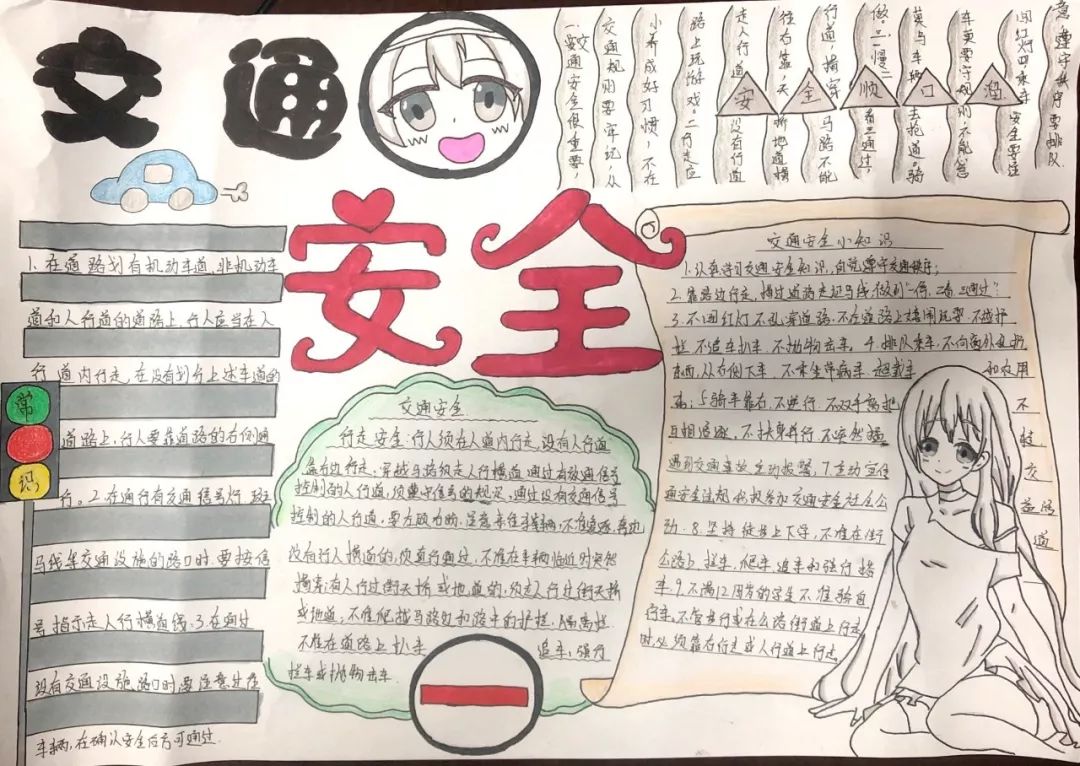 交通
安全
安全顺口溜
一、交
要交通安全很重要，
交通规则要牢记，从
小养成好习惯，不在
路上玩游戏。二、行走应
走人行道，没有行道
往右靠，天桥地道横
行道，横穿马路不能
做。三、一慢二看三通过，
莫与车辆去抢道。骑
车更要守规则，不能
闯红灯。四、乘车安全要注
意，遵守秩序要排队
常
识
1.在道路划有机动车道、非机动车
道和人行道的道路上,行人应当在人
行道内行走,在没有划分上述车道的
道路上,行人要靠道路的右侧通
行。2.在通行有交通信号灯、斑
马线等交通设施的路口时,要按信
号指示走人行横道线。3.在通过
没有交通设施路口时,要注意过往
车辆,在确认安全后方可通过.
交通安全
行走安全:行人须在人道内行走,没有人行道
靠右边行走;穿越马路须走人行横道;通过有交通信号
控制的人行道,须遵守信号的规定;通过没有交通信号
控制的人行道,要左顾右盼,注意来往车辆,不准追逐,奔跑
没有行人横道的,须直行通过,不准在车辆临近时突然
横穿;有人行过街天桥或地道的,须走人行过街天桥
或地道;不准爬越马路边和路中的护栏、隔离栏
不准在道路上扒车 追车,强行
拦车或抛物击车.
交通安全小知识
1.认真学习交通安全知识,自觉遵守交通秩序;
2.靠路边行走,横过道路走斑马线做到"一停、二看、三通过";
3.不闯红灯不乱穿道路,不在道路上嬉闹玩耍,不越护
栏不追车扒车、不抛物击车。4.排队乘车,不向窗外乱扔
东西,从右侧下车、不乘坐带病车、超载车 和农用
车;5骑车靠右,不逆行、不双手离把 不
互相追逐,不扶身并行,不突然猛 转
遇到交通事故主动报警、7.主动宣传 交
通安全法规,积极参加交通安全社会公 益活
动。8.坚持徒步上下学,不准在街 道
公路上拦车、爬车、追车和强行搭
车。9.不满12周岁的学生不准骑自
行车,不管单行或在公路街道上行走
时,必须靠右行走或人行道上行走